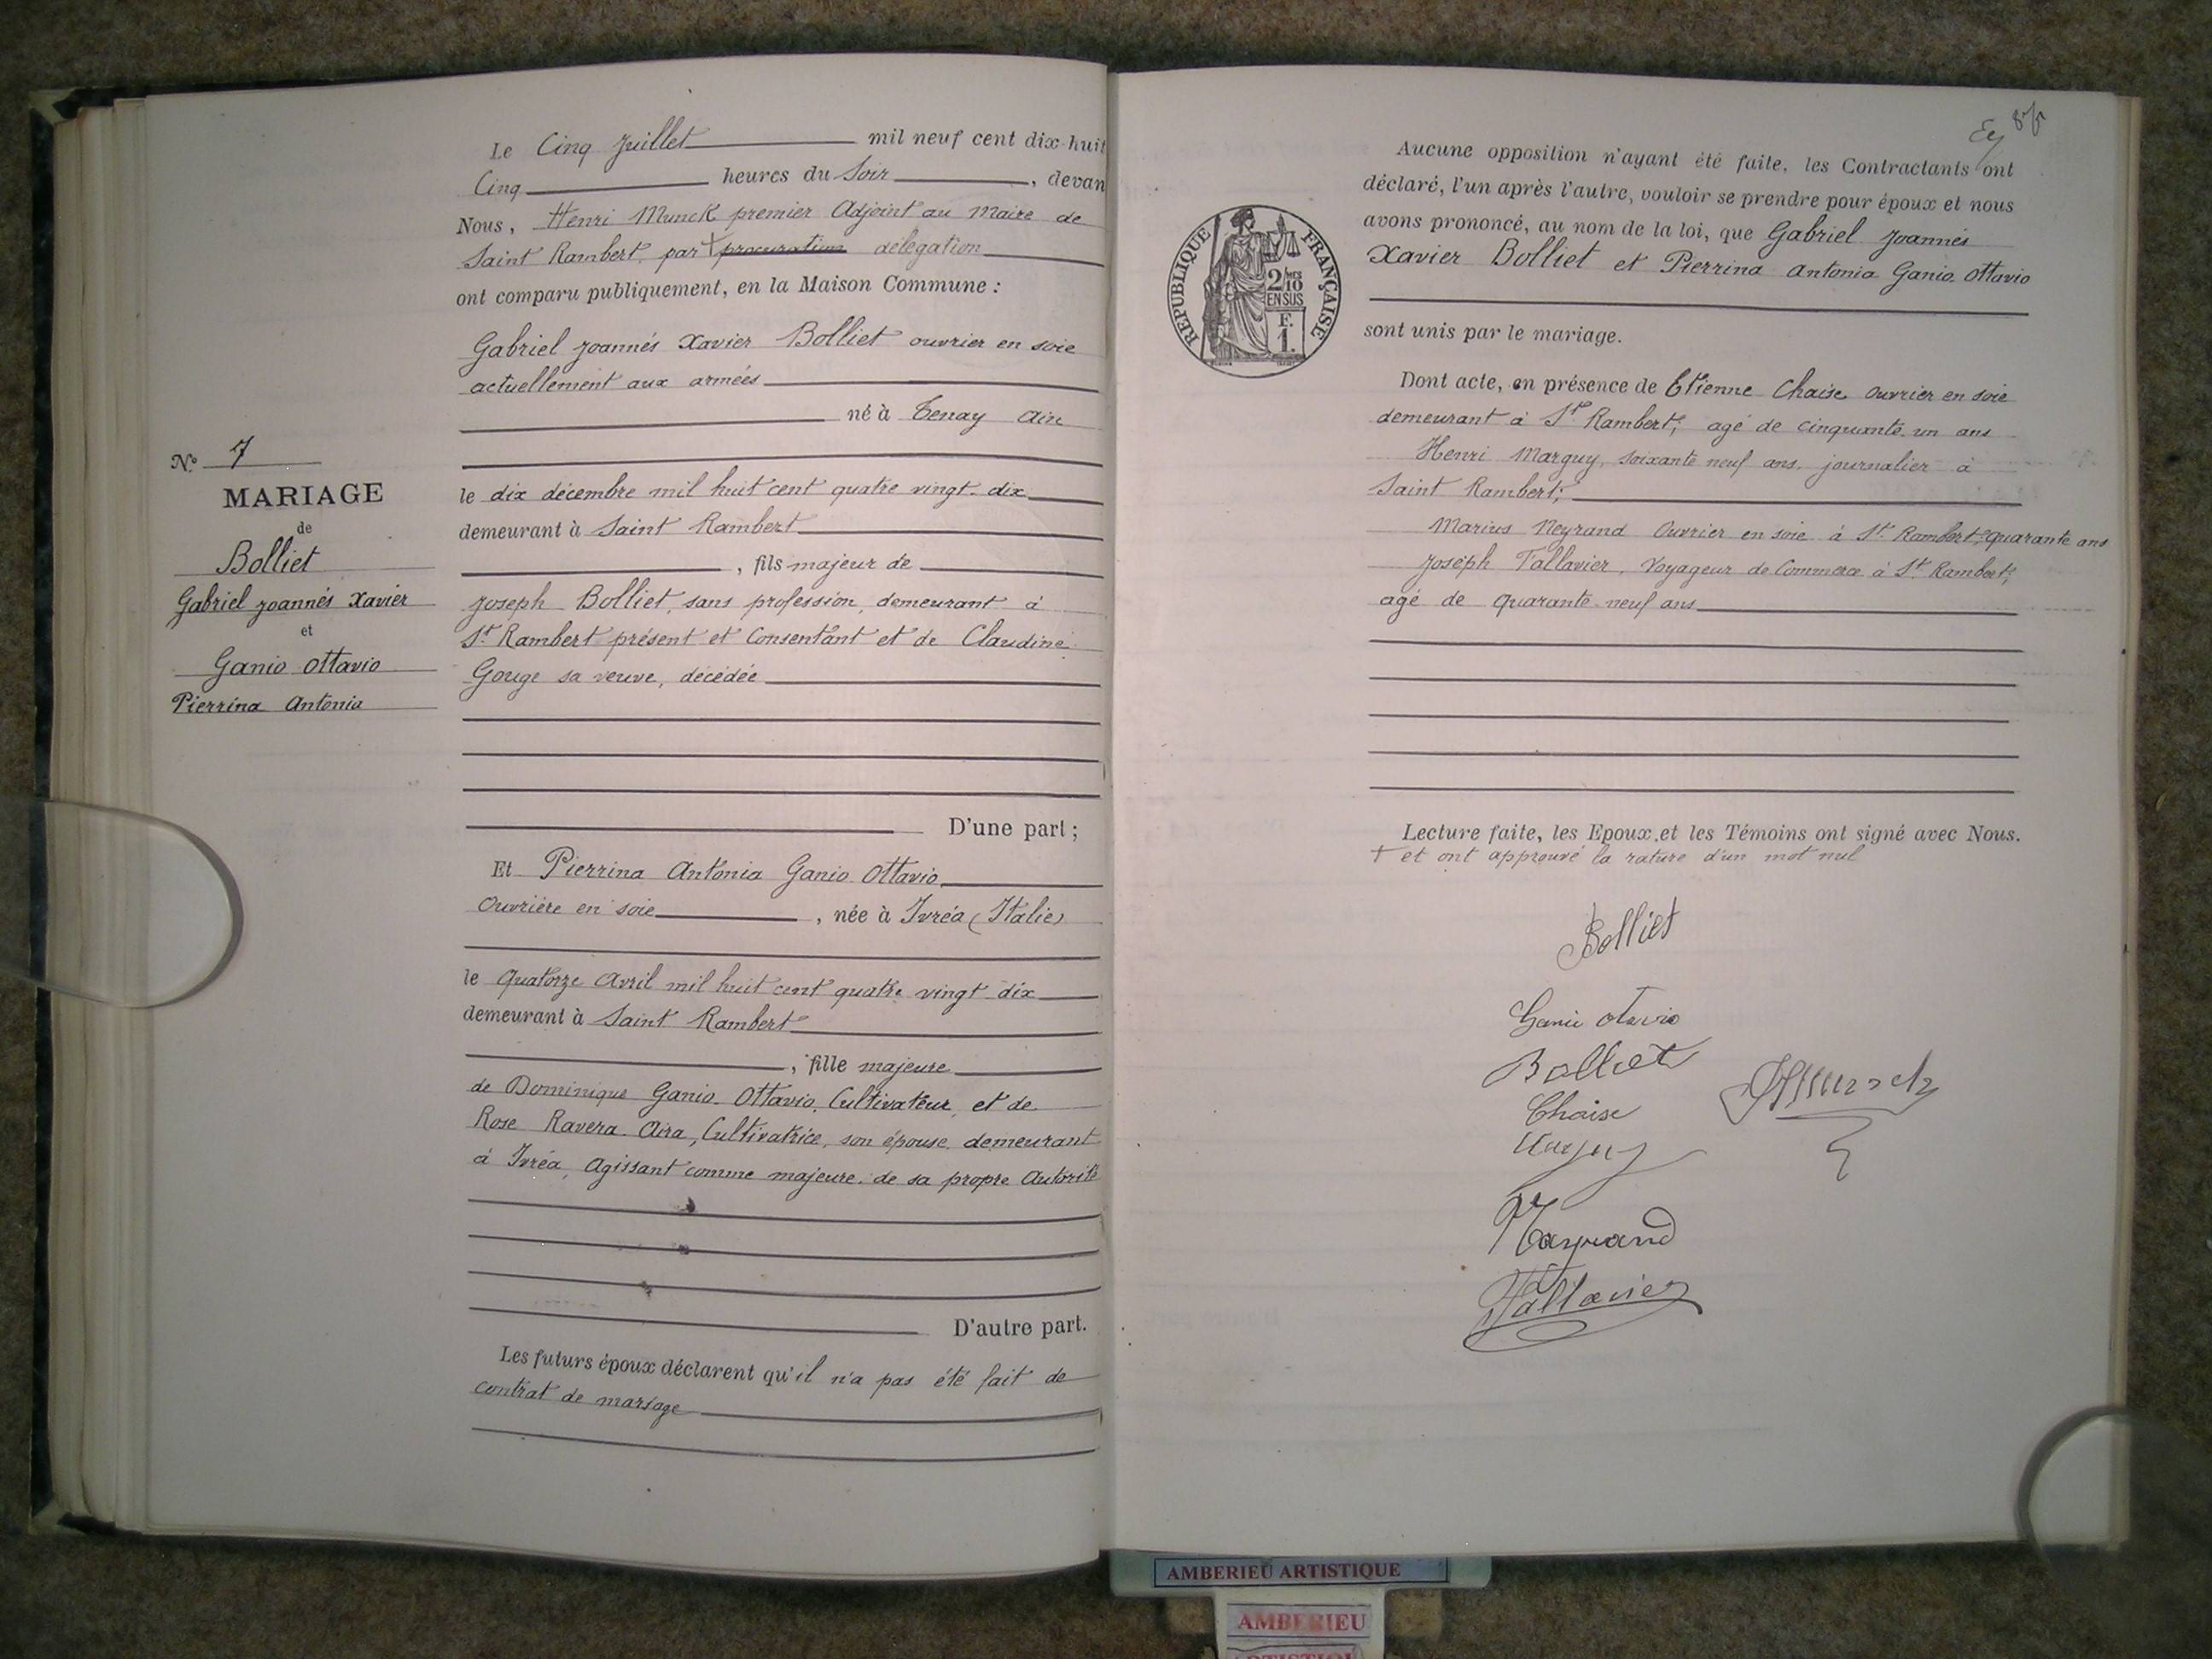 Le Cinq Juillet mil neuf cent dix-huit
Cinq heures du Soir, devan
Nous, Henri Munck premier Adjoint au Maire de
Saint Rambert, par + procuration délégation
ont comparu publiquement, en la Maison Commune :
Gabriel Joannés Xavier Bolliet ouvrier en soie
actuellement aux armées
né à Tenay Ain
le dix décembre mil huit cent quatre vingt-dix
demeurant à Saint Rambert
, fils majeur de
Joseph Bolliet, sans profession, demeurant à
St Rambert présent et Consentant et de Claudine
Gouge sa veuve, décédée
D'une part ;
Et Pierrina Antonia Ganio Ottavio
Ouvrière en soie, née à Ivréa (Italie)
le quatorze Avril mil huit cent quatre vingt dix
demeurant à Saint Rambert
, fille majeure
de Dominique Ganio Ottavio, Cultivateur, et de
Rose Ravera Aira, Cultivatrice, son épouse demeurant
à Ivréa, Agissant comme majeure de sa propre Autorité
D'autre part.
Les futurs époux déclarent qu'il n'a pas été fait de
contrat de mariage
N° 7
MARIAGE
de
Bolliet
Gabriel Joannés Xavier
et
Ganio Ottavio
Pierrina Antonia
Aucune opposition n'ayant été faite, les Contractants ont
déclaré, l'un après l'autre, vouloir se prendre pour époux et nous
avons prononcé, au nom de la loi, que Gabriel Joannés
Xavier Bolliet et Pierrina Antonia Ganio Ottavio
sont unis par le mariage.
RÉPUBLIQUE FRANÇAISE
2/10 MES
EN SUS
F.
1.
Dont acte, en présence de Etienne Chaise Ouvrier en soie
demeurant à St Rambert, agé de cinquante un ans
Henri Marguy, soixante neuf ans, journalier à
Saint Rambert;
Marius Neyrand Ouvrier en soie à St Rambert, quarante ans
Joseph Tallavier, Voyageur de Commerce à St Rambert,
agé de quarante neuf ans
Lecture faite, les Epoux et les Témoins ont signé avec Nous.
+ et ont approuvé la rature d'un mot nul
Bolliet
Ganio Otavio
Bolliet
Chaise
Tallavier
AMBERIEU ARTISTIQUE
AMBERIEU